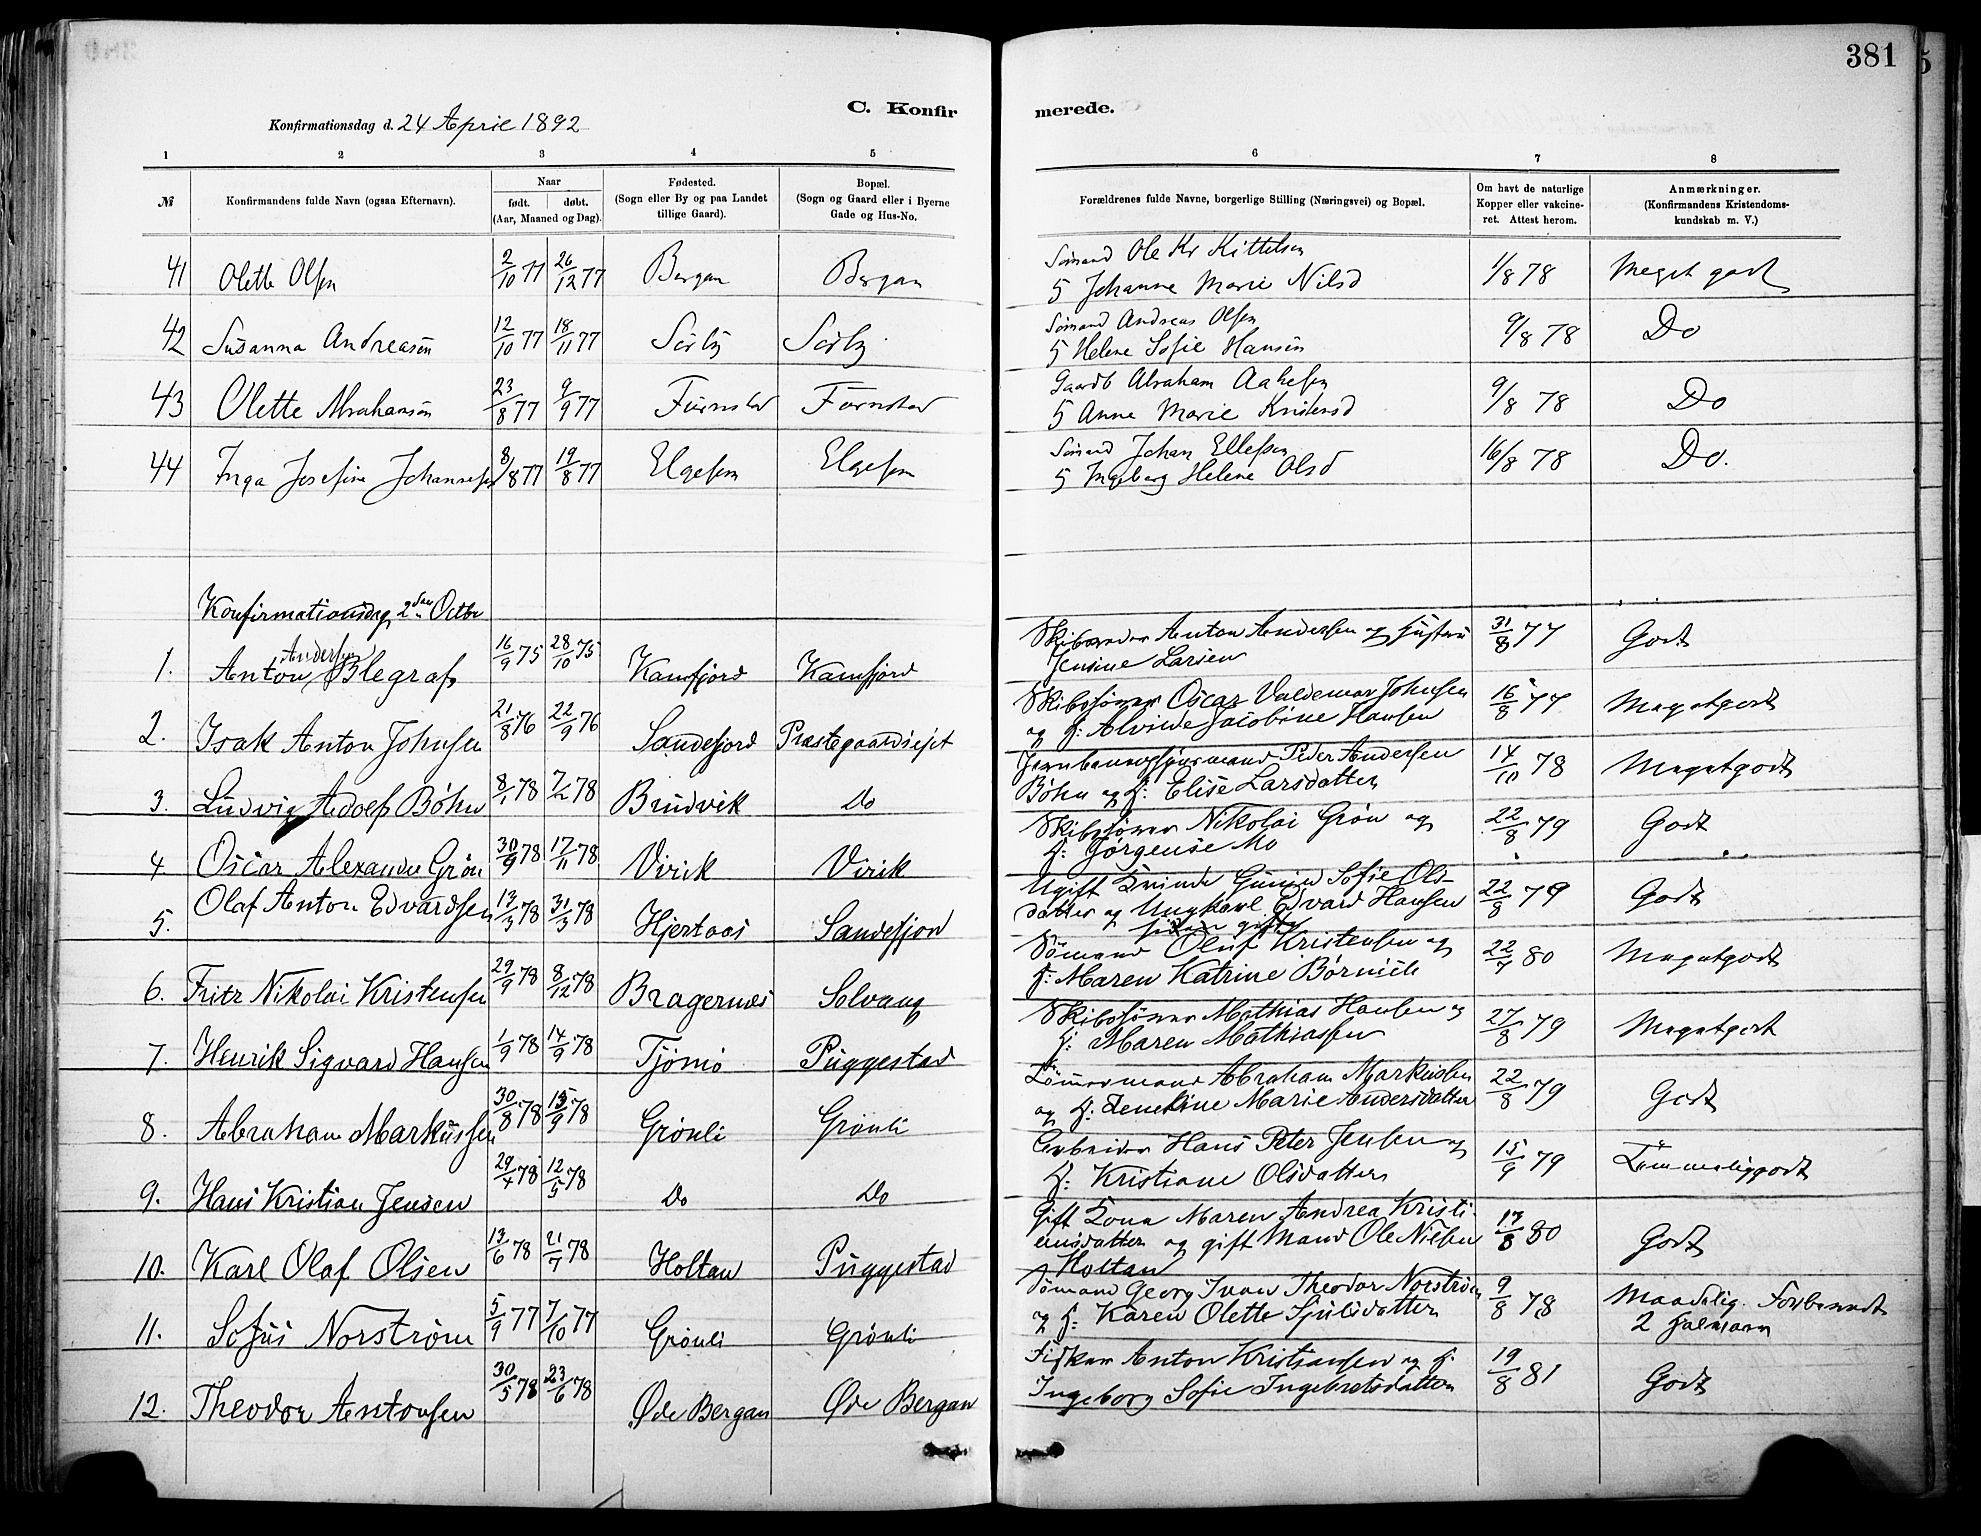 381
C. Konfir merede.
Konfirmationsdag d. 24 April 1892
1 2 3 4 5 6 7 8
№ | Konfirmandens fulde Navn (ogsaa Efternavn). | Naar født. døbt. (Aar, Maaned og Dag). | Fødested. (Sogn eller By og paa Landet tillige Gaard). | Bopæl. (Sogn og Gaard eller i Byerne Gade og Hus-No. | Forældrenes fulde Navne, borgerlige Stilling (Næringsvei) og Bopæl. | Om havt de naturlige Kopper eller vakcineret. Attest herom. | Anmærkninger. (Konfirmandens Kristendomskundskab m. V.)
41 Olette Olsen 2/10 77 26/12 77 Bergan Bergan Sømand Ole Kr Kittelsen 1/8 78 Meget godt
5 Johanne Marie Nilsd
42 Susanna Andreasen 12/10 77 18/11 77 Sörby Sörby Sømand Andreas Olsen 9/8 78 Do
5 Helene Sofie Hansen
43 Olette Abrahamsen 23/8 77 9/9 77 Furustad Furustad Gaardb Abraham Aakesen 9/8 78 Do
5 Anne Marie Kristensd
44 Inga Josefine Johannesen 8/8 77 19/8 77 Elgesem Elgesem Sømand Johan Ellefsen 16/8 78 Do.
5 Ingeborg Helene Olsd
Konfirmationsdag 2den Octbr
1. Anton Andersen Blegraf 16/9 75 28/10 75 Kamfjord Kamfjord Anton Andersen og Hustru 31/8 77 Godt
Jensine Larsen
2. Isak Anton Johnsen 21/8 76 22/9 76 Sandefjord Præstegaardsejet Skibsfører Oscar Valdemar Johnsen 16/8 77 Megetgodt
og H: Alvide Jacobine Hansen
3. Ludvig Adolf Böhn 8/1 78 7/2 78 Brudvik Do Peder Andersen 14/10 78 Megetgodt
Böhn og H: Elise Larsdatter
4 Oscar Alexander Grön 30/9 78 17/11 78 Virik Virik Skibsfører Nikolai Grön og 22/8 79 Godt
H: Jörgense Mo
5. Olaf Anton Edvardsen 13/3 78 31/3 78 Hjertaas Sandefjord Ugift Kvinde Sofie Ols- 22/8 79 Godt
datter og Ungkarl Edvard Hansen
siden gifte
6. Fritz Nikolai Kristensen 29/9 78 8/12 78 Bragernæs Solvang Sömand Oluf Kristensen og 22/7 80 Megetgodt
H: Maren Katrine
7. Henrik Sigvard Hansen 1/9 78 14/9 78 Tjömö Puggestad Skibsfører Mathias Hansen og 27/8 79 Megetgodt
H: Maren Mathiassen
8. Abraham Markussen 30/8 78 15/9 78 Grönli Grönli Tömmermand Abraham Markussen 22/8 79 Godt
og H: Marie Andersdatter
9. Hans Kristian Jensen 29/4 78 12/5 78 Do Do Arbeider Hans Peter Jensen og 15/9 79 Temmeliggodt
H: Kristiane Olsdatter
10. Karl Olaf Olsen 13/6 78 21/7 78 Holtan Puggestad Gift Kona Maren Andrea Kristi- 17/8 80 Godt
ansdatter og gift Mand Ole Nielsen
Holtan
11. Sofus Norström 5/9 77 7/10 77 Grönli Grönli Sömand Georg Ivar Theodor Norström 9/8 78 Maadelig. Forberedt
og H: Karen Olette 2 halvaar
12. Theodor Antonsen 30/5 78 23/6 78 Øde Bergan Øde Bergan Fisker Anton Kristiansen og H. 19/8 81 Godt
Ingeborg Sofie Ingebretsdatter